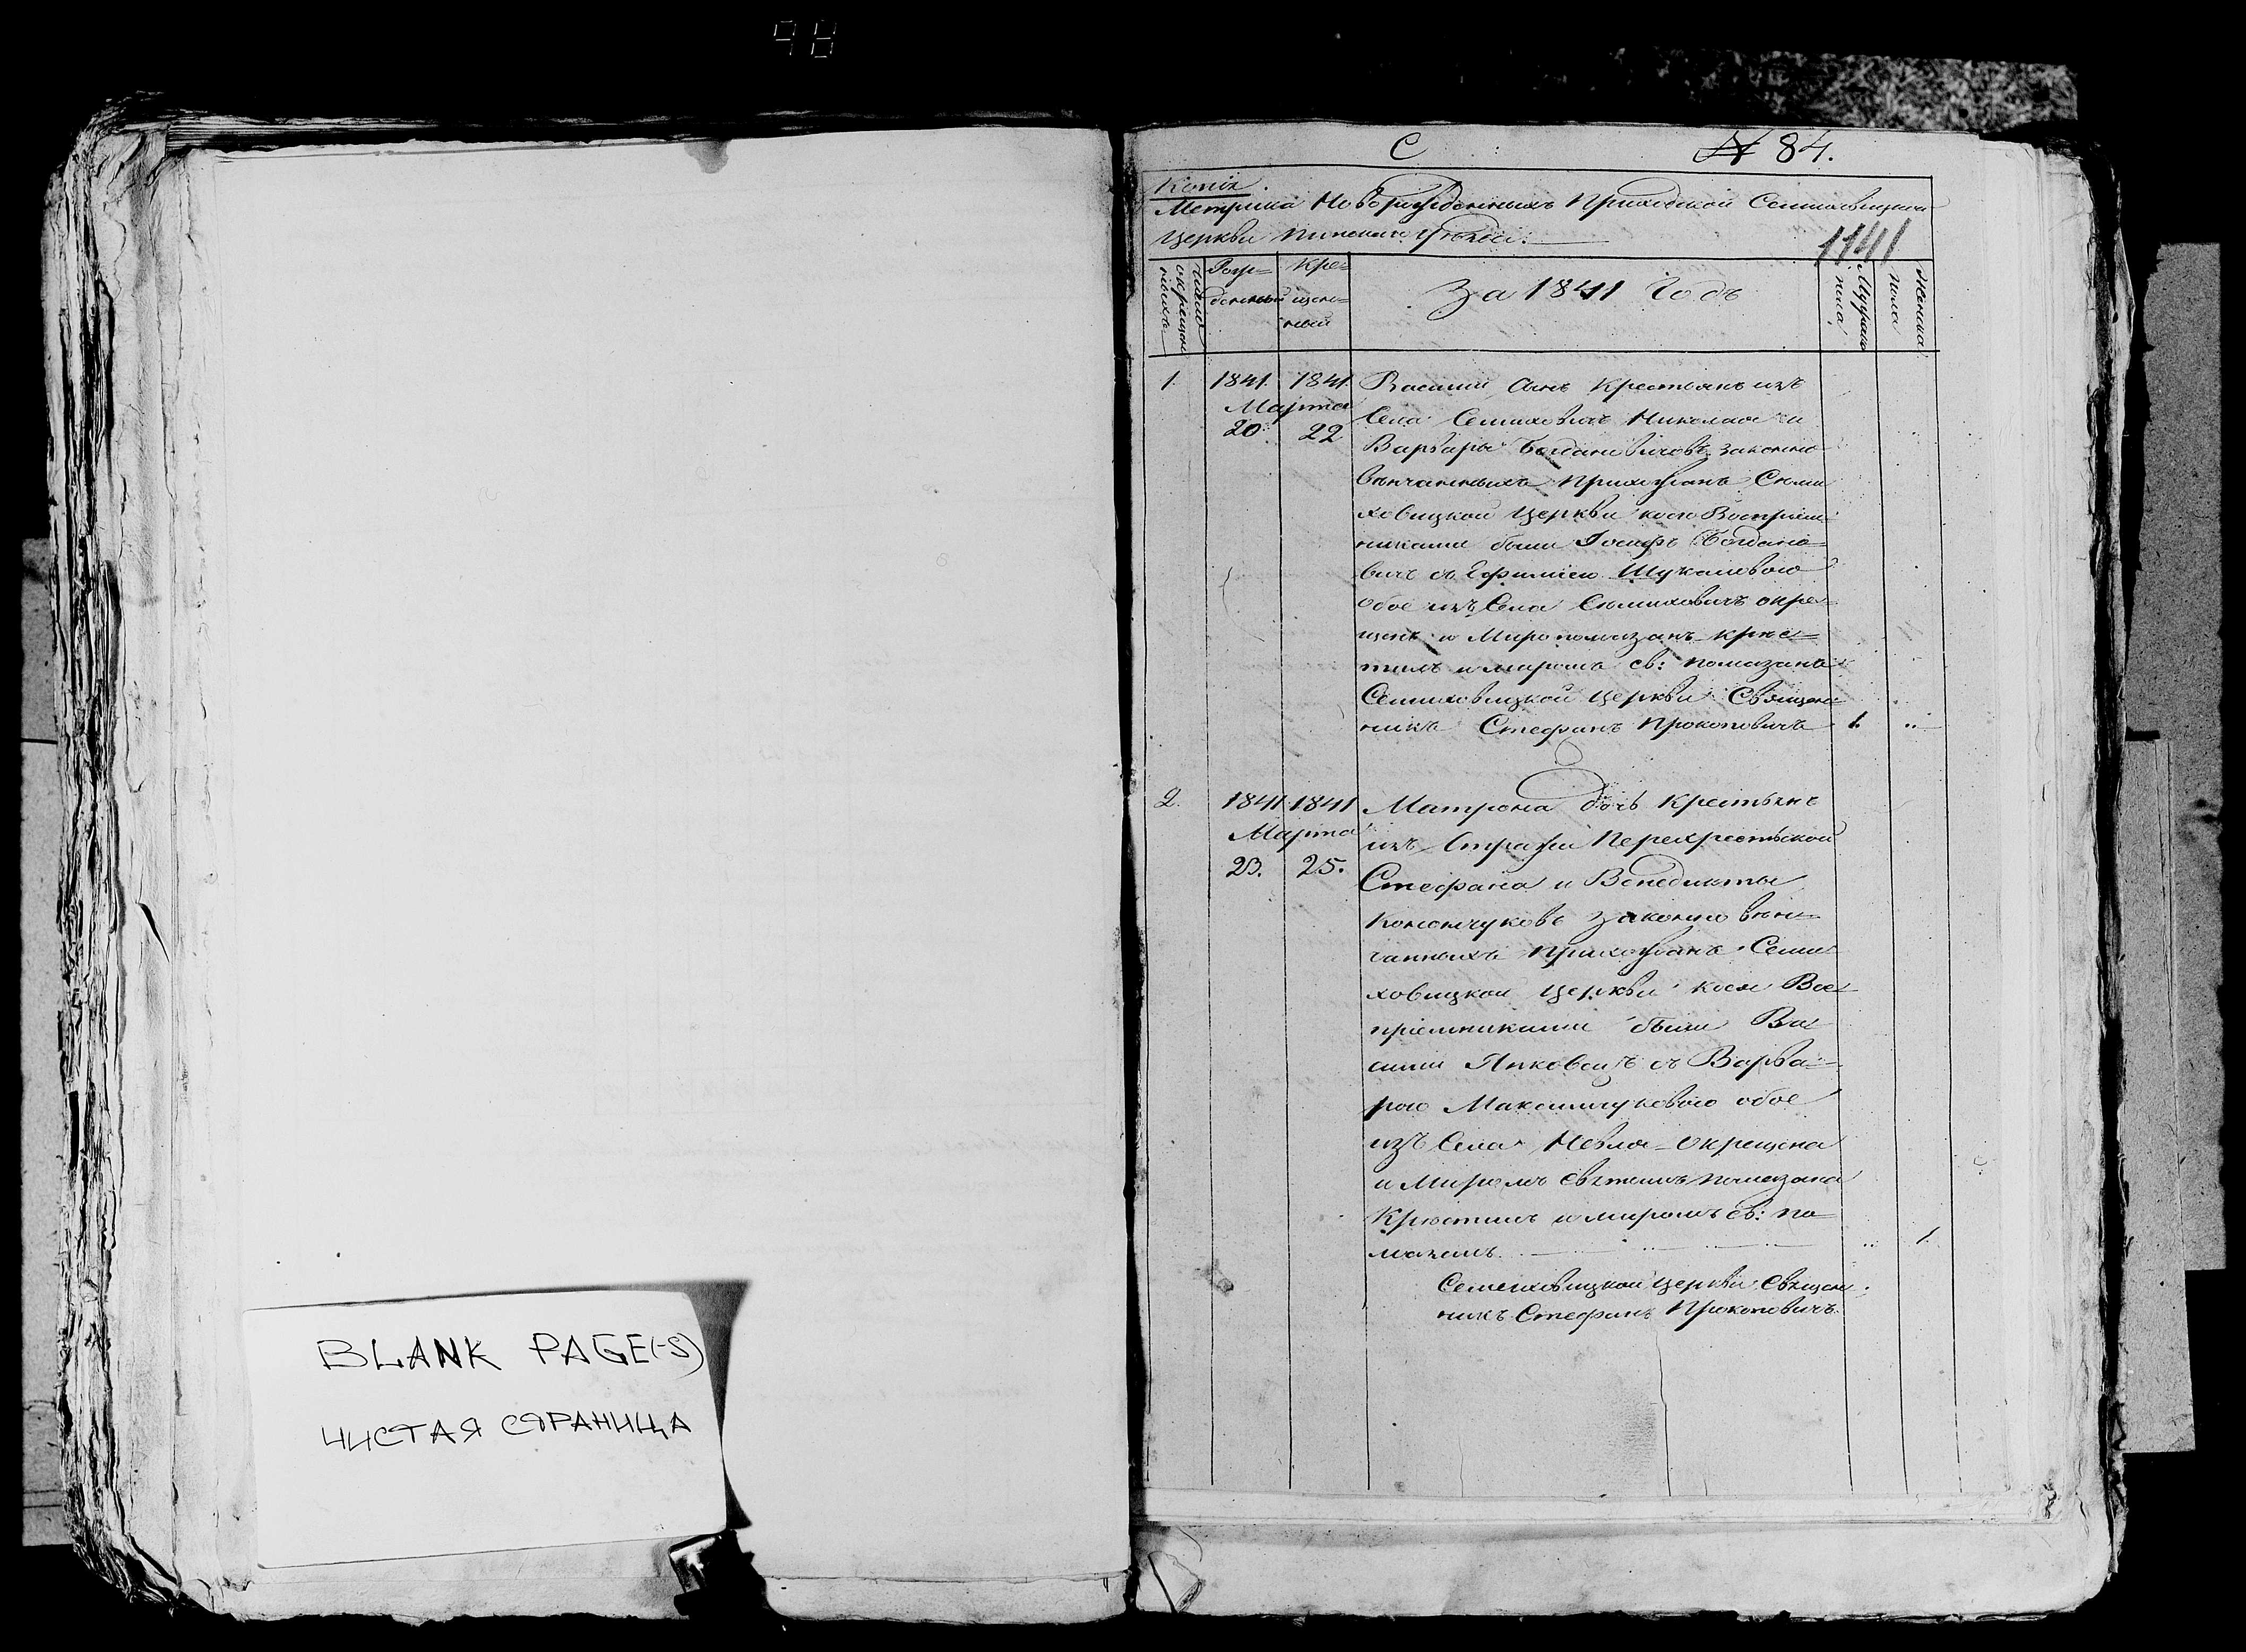 98
BLANK PAGE(-S)
ЧИСТАЯ СТРАНИЦА
С № 84.
Копія.
Метрика Новорожденныхъ Приходской Семиховицкой
Церкви Пинскаго Уезда.
1141
число окрещен ныхъ
Рож= денный
Кре= щен= ный
За 1841 Годъ
Мужеска пола
Женска пола
1. 1841. 1841. Василий сынъ крестьянъ изъ
Марта
20. 22 Села Семиховичъ Николая и
Варвары Богдановичовъ законно
венчанныхъ прихожанъ Семи
ховицкой Церкви коего Воспріем=
никами были Іосифъ Богдано=
вичъ съ Ефиміею
обое изъ Села Семиховичъ окре=
щенъ и Миропомазанъ крес=
тилъ и миромъ св: помазалъ
Семиховицкой Церкви Священ
никъ Стефанъ Прокоповичъ 1. ..
2. 1841 1841 Матрона дочь крестьянъ
Марта
изъ Стражи Перехрестьской
23. 25.
Стефана и Бенедикты
Конончуковъ законно вен=
чанныхъ прихожанъ Семи
ховицкой Церкви коея Вос=
пріемниками были Ва
силий съ Варва=
рою Максимчуковою обое
изъ Села Невля окрещена
и Миромъ святымъ помазана
Крестилъ и миромъ св: по
мазалъ. .. 1.
Семиховицкой Церкви Священ
никъ Стефанъ Прокоповичъ.